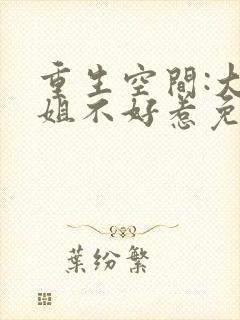 重生空間:大
姐不好惹免
葉紛繁